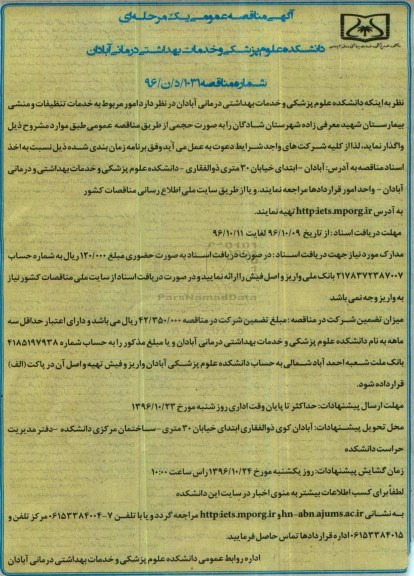 آگهی مناقصه عمومی یک مرحله ای
دانشکده علوم پزشکی و خدمات بهداشتی درمانی آبادان
شماره مناقصه ۱۰۳۱/د/ن/۹۶
نظر به اینکه دانشکده علوم پزشکی و خدمات بهداشتی درمانی آبادان در نظر دارد امور مربوط به خدمات تنظیفات و منشی
بیمارستان شهید معرفی زاده شهرستان شادگان را به صورت حجمی از طریق مناقصه عمومی طبق موارد مشروح ذیل
واگذار نماید، لذا از کلیه شرکت های واجد شرایط دعوت به عمل می آید وفق برنامه زمان بندی شده ذیل نسبت به اخذ
اسناد مناقصه به آدرس: آبادان - ابتدای خیابان ۳۰ متری ذوالفقاری - دانشکده علوم پزشکی و خدمات بهداشتی و درمانی
آبادان - واحد امور قراردادها مراجعه نمایند. و یا از طریق سایت ملی اطلاع رسانی مناقصات کشور
به آدرس http:iets.mporg.ir تهیه نمایند.
مهلت دریافت اسناد: از تاریخ ۹۶/۱۰/۰۹ لغایت ۹۶/۱۰/۱۱
مدارک مورد نیاز جهت دریافت اسناد: در صورت دریافت اسناد به صورت حضوری مبلغ ۱۲۰/۰۰۰ ریال به شماره حساب
۲۱۷۸۳۷۲۳۸۷۰۰۷ بانک ملی واریز و اصل فیش را ارائه نمایید و در صورت دریافت اسناد از سایت ملی مناقصات کشور نیاز
به واریز وجه نمی باشد
ParsNamadData
میزان تضمین شرکت در مناقصه: مبلغ تضمین شرکت در مناقصه ۴۲/۳۵۰/۰۰۰ ریال می باشد و دارای اعتبار حداقل سه
ماهه به نام دانشکده علوم پزشکی و خدمات بهداشتی درمانی آبادان و یا مبلغ مذکور را به حساب شماره ۴۱۸۵۱۹۷۹۳۸
بانک ملت شعبه احمد آباد شمالی به حساب دانشکده علوم پزشکی آبادان واریز و فیش تهیه و اصل آن در پاکت (الف)
قرار داده شود.
مهلت ارسال پیشنهادات: حداکثر تا پایان وقت اداری روز شنبه مورخ ۱۳۹۶/۱۰/۲۳
محل تحویل پیشنهادات: آبادان کوی ذوالفقاری ابتدای خیابان ۳۰ متری - ساختمان مرکزی دانشکده - دفتر مدیریت
حراست دانشکده
زمان گشایش پیشنهادات: روز یکشنبه مورخ ۱۳۹۶/۱۰/۲۴ راس ساعت ۱۰:۰۰
لطفا برای کسب اطلاعات بیشتر به منوی اخبار در سایت این دانشکده
به نشانی hn-abn.ajums.ac.ir و http:iets.mporg.ir مراجعه گردد و یا با تلفن ۷-۰۶۱۵۳۳۸۴۰۰۴ مرکز تلفن و
۰۶۱۵۳۳۸۴۰۱۵ اداره قراردادها تماس حاصل فرمایید.
اداره روابط عمومی دانشکده علوم پزشکی و خدمات بهداشتی درمانی آبادان